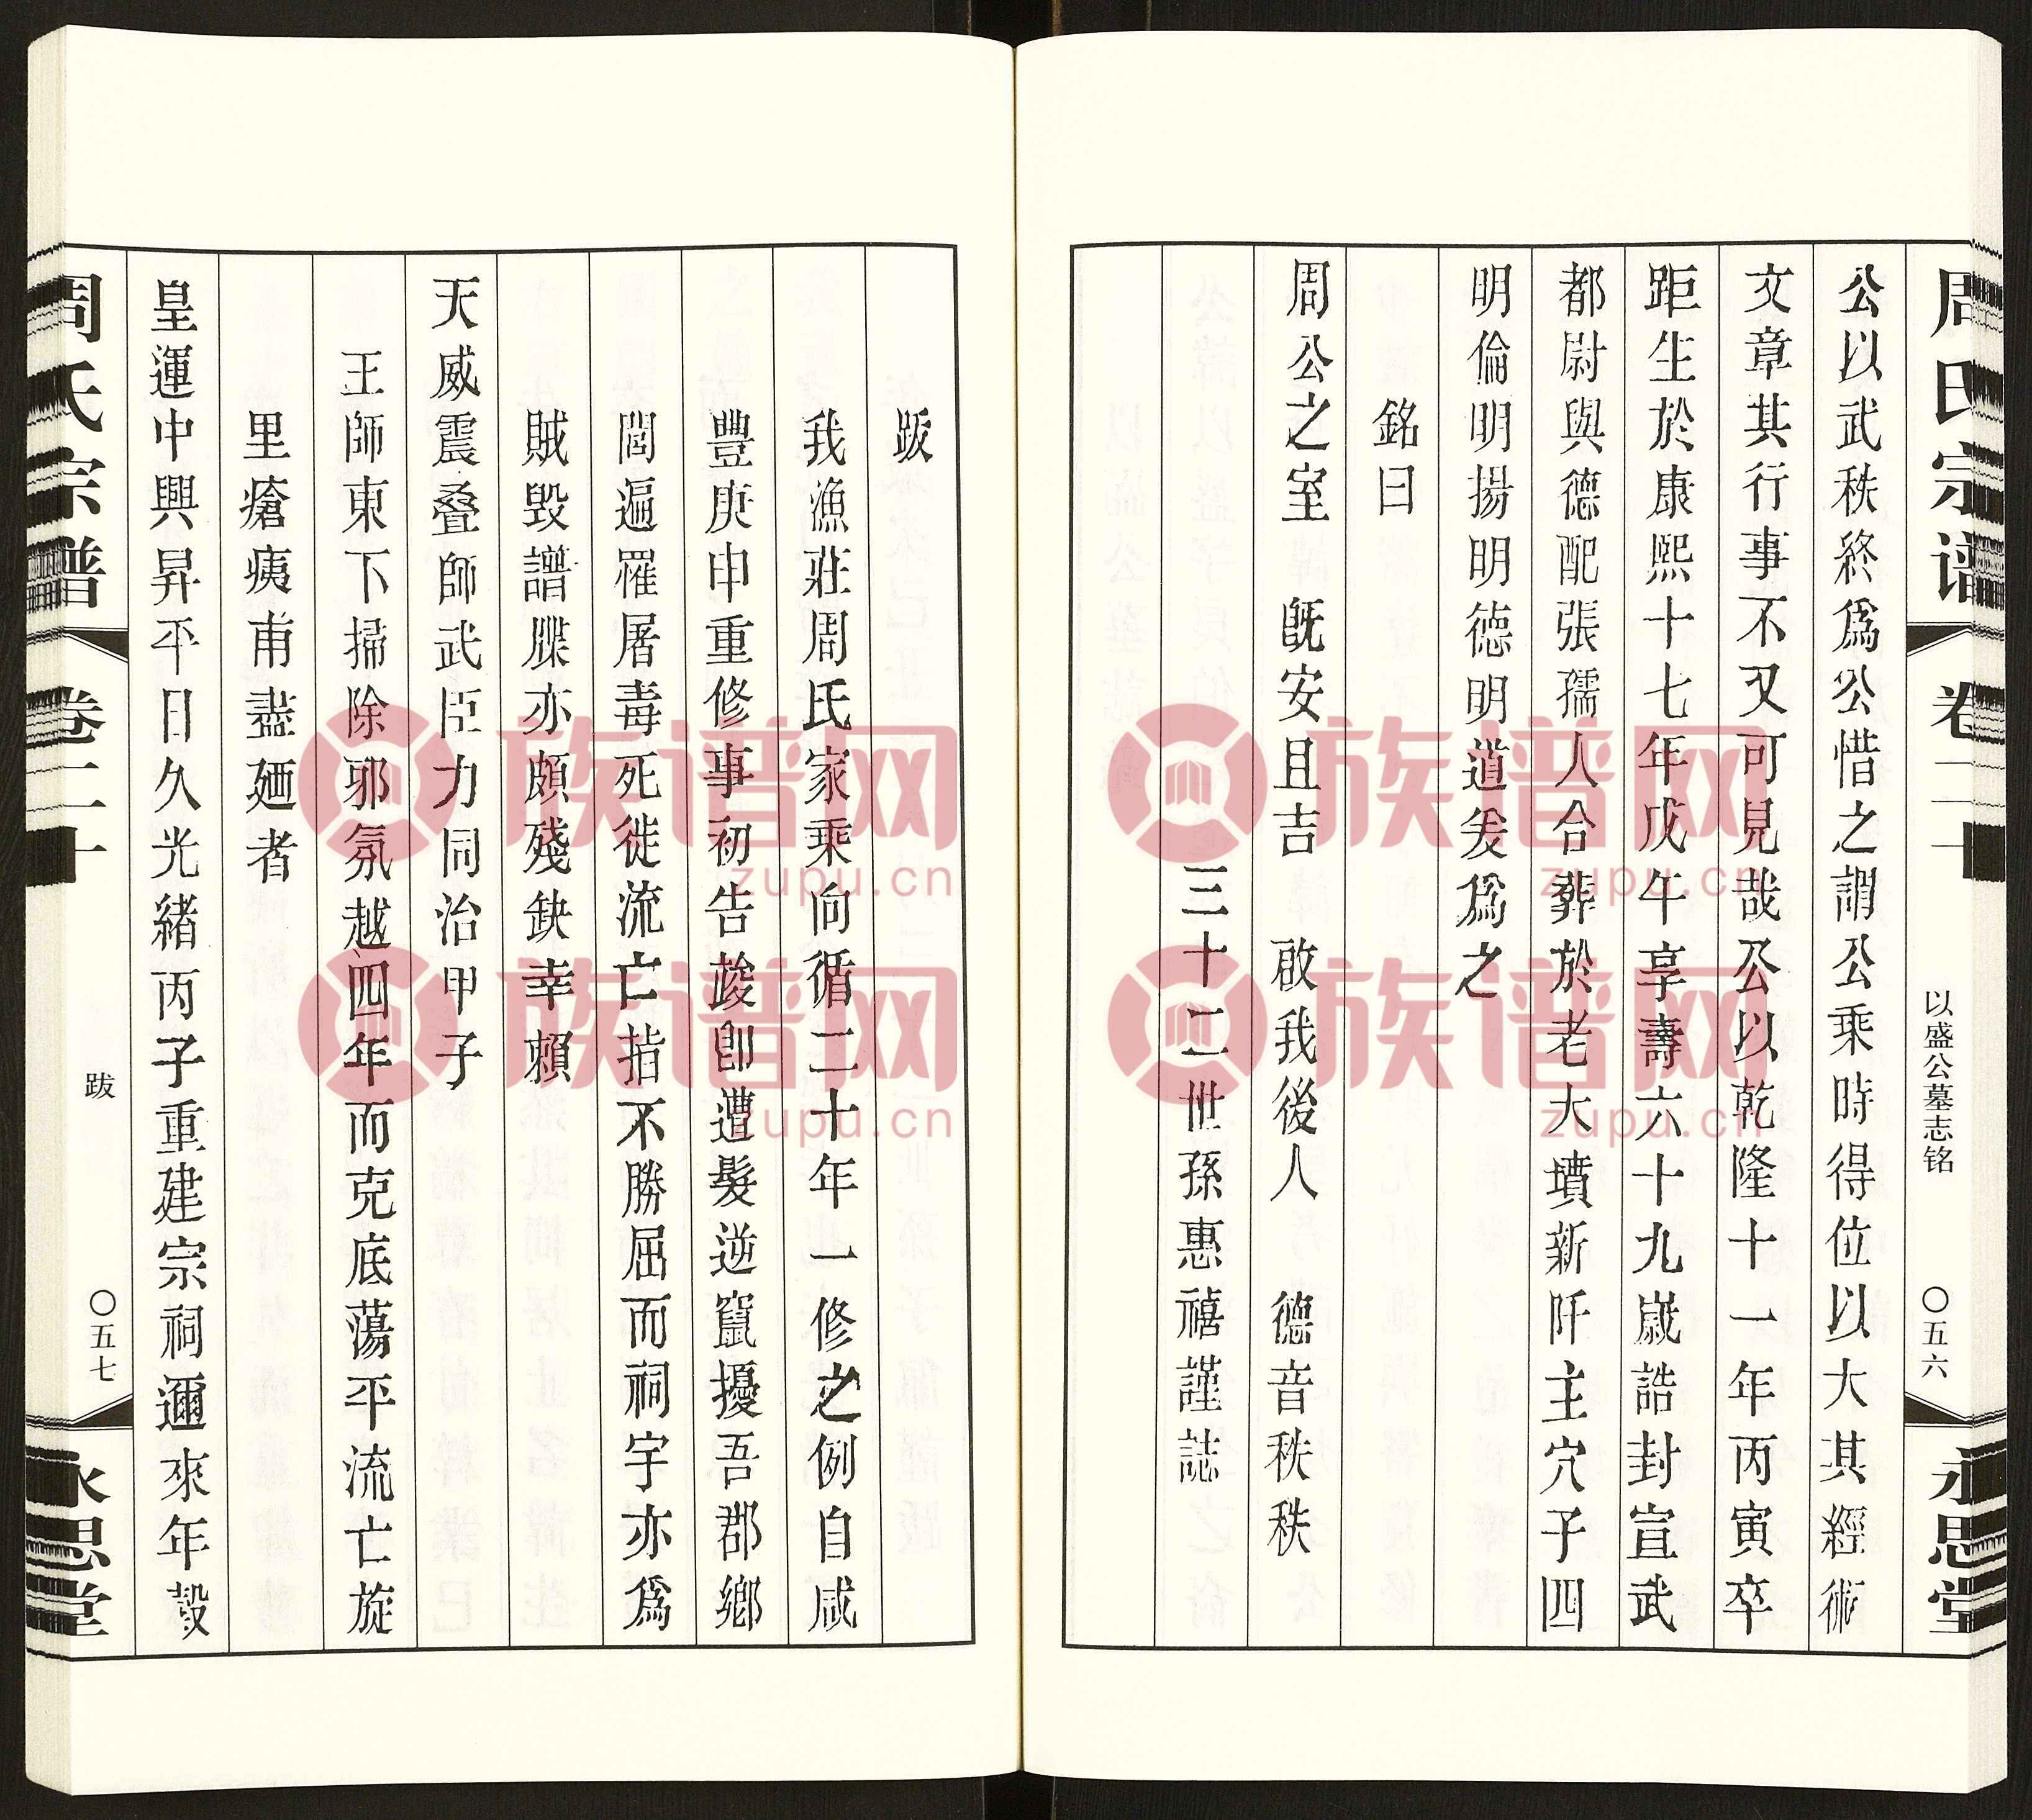 周氏宗谱 卷二十 以盛公墓志铭 〇五六 永思堂
公以武秩終爲公惜之謂公乘時得位以大其經術
文章其行事不又可見哉公以乾隆十一年丙寅卒
距生於康熙十七年戊午享壽六十九嵗誥封宣武
都尉與德配張孺人合葬於老大墳新阡主穴子四
明倫明揚明德明道爰爲之
銘曰
周公之室 旣安且吉 啟我後人 德音秩秩
三十二世孫惠禧謹誌
跋
我漁莊周氏家乘向循二十年一修之例自咸
豐庚申重修事初告竣卽遭髮逆竄擾吾郡鄉
閭遍罹屠毒死徙流亡指不勝屈而祠宇亦爲
賊毀譜牒亦頗殘缺幸賴
天威震叠師武臣力同治甲子
王師東下掃除邪氛越四年而克底蕩平流亡旋
里瘡痍甫蓋廼者
皇運中興昇平日久光緒丙子重建宗祠邇來年穀
周氏宗谱 卷二十 跋 〇五七 永思堂
族谱网
zupu.cn
族谱网
zupu.cn
族谱网
zupu.cn
族谱网
zupu.cn